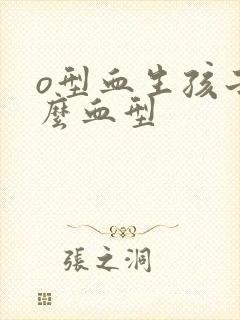 o型血生孩子
麼血型
張之洞